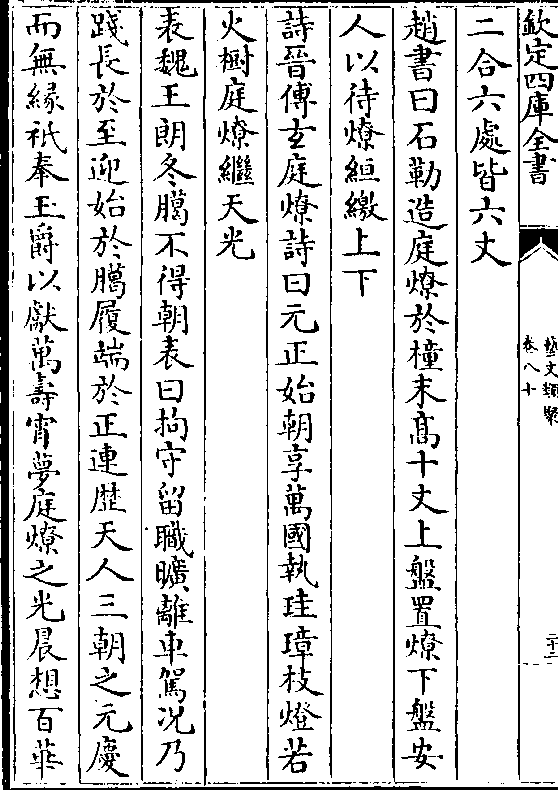 欽定四庫全書
藝文類聚
卷八十
二十二
二合六處皆六丈
趙書曰石勒造庭燎於橦末髙十丈上盤置燎下盤安
人以待燎絙繳上下
詩晉傅玄庭燎詩曰元正始朝享萬國執珪璋枝燈若
火樹庭燎繼天光
表魏王朗冬臈不得朝表曰拘守留職曠離車駕况乃
踐長於至迎始於臈履端於正連歴天人三朝之元慶
而無縁祇奉玉爵以獻萬壽宵夢庭燎之光晨想百華